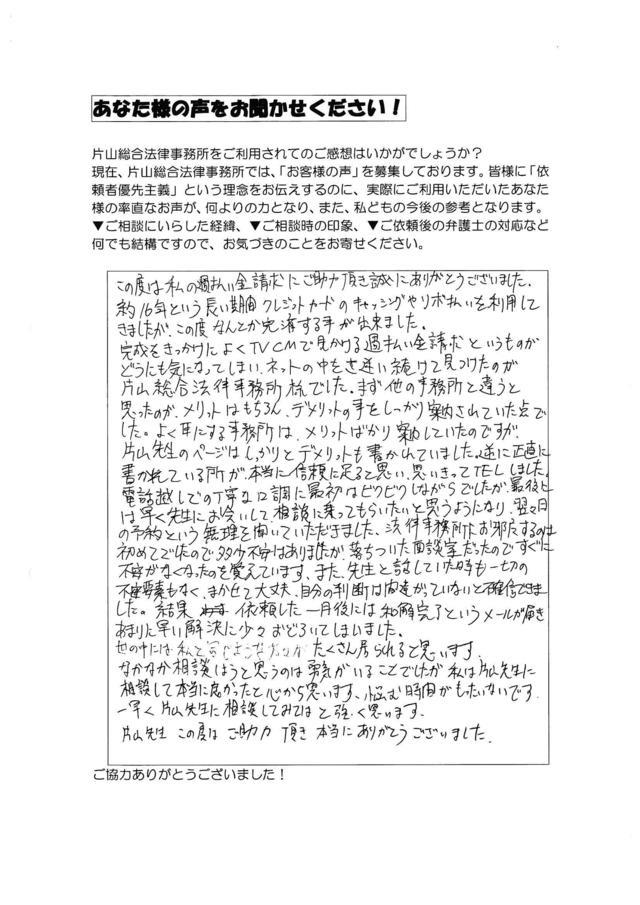 あなた様の声をお聞かせください！
片山総合法律事務所をご利用されてのご感想はいかがでしょうか？
現在、片山総合法律事務所では、「お客様の声」を募集しております。皆様に「依
頼者優先主義」という理念をお伝えするのに、実際にご利用いただいたあなた
様の率直なお声が、何よりの力となり、また、私どもの今後の参考となります。
▼ご相談にいらした経緯、▼ご相談時の印象、▼ご依頼後の弁護士の対応など
何でも結構ですので、お気づきのことをお寄せください。
この度は私の過払い金請求にご助力頂き誠にありがとうございました。
約16年という長い期間クレジットカードのキャッシングやリボ払いを利用して
きましたが、この度なんとか完済する事が出来ました。
完成をきっかけによくTVCMで見かける過払い金請求というものが
どうにも気になってしまい、ネットの中をさ迷い続けて見つけたのが
片山総合法律事務所様でした。まず他の事務所と違うと
思ったのが、メリットはもちろん、デメリットの事をしっかり案内されていた点で
した。よく耳にする事務所は、メリットばかり案内していたのですが、
片山先生のページはしっかりとデメリットも書かれていました。逆に正直に
書かれている所が、本当に信頼に足ると思い、思いきってTELしました。
電話越しでの丁寧な口調に最初はビクビクしながらでしたが、最後に
は早く先生にお会いして、相談に乗ってもらいたいと思うようになり、翌々日
の予約という無理を聞いていただきました。法律事務所にお邪魔するのは
初めてでしたので多少不安はありましたが、落ちついた面談室だったのですぐに
不安がなくなったのを覚えています。また、先生と話していた時も一切の
不安要素もなく、まかせて大丈夫、自分の判断は間違がっていないと確信できま
した。結果 依頼した一月後には和解完了というメールが届き
あまりに早い解決に少々おどろいてしまいました。
世の中には私と同じような方々がたくさん居られると思います。
なかなか相談しようと思うのは勇気がいることでしたが私は片山先生に
相談して本当に良かったと心から思います。悩む時間がもったいないです。
一早く片山先生に相談してみてはと強く思います。
片山先生 この度は ご助力 頂き 本当に ありがとうございました。
ご協力ありがとうございました！